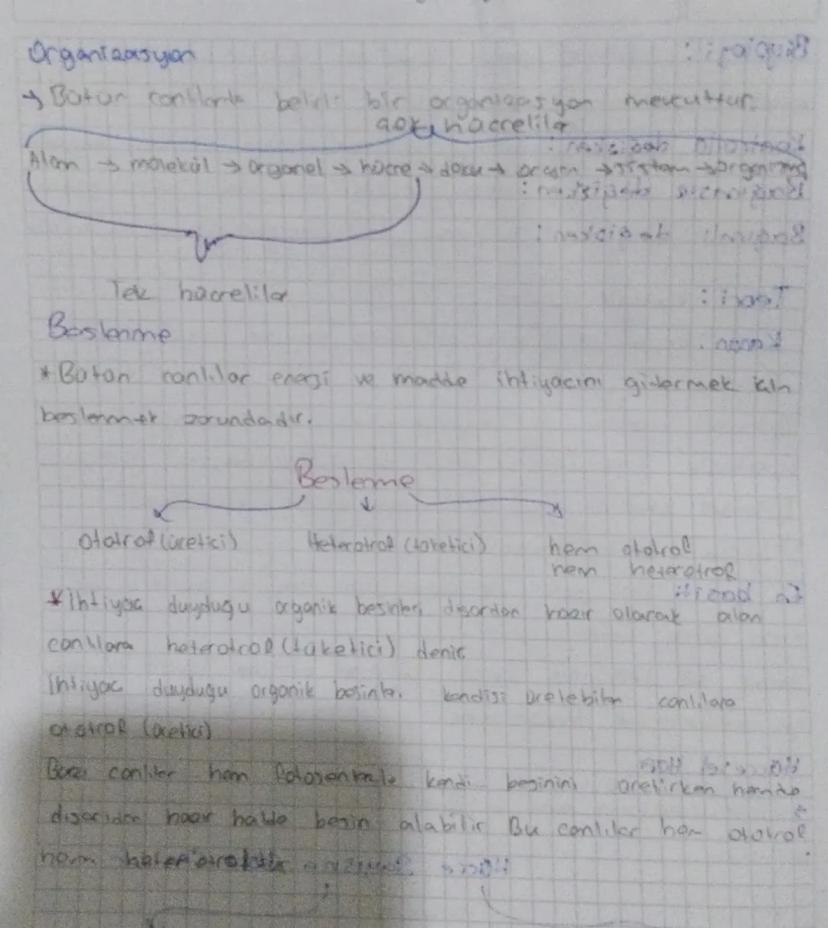 Organizasyon
→ Bütün canlılarda belirli bir organizasyon mevcuttur.
çok hücreliler
Atom → molekül → organel → hücre → doku → organ → sistem → organizma
Tek hücreliler
Beslenme
* Bütün canlılar enerji ve madde ihtiyacını gidermek için
beslenmek zorundadır.
Beslenme
ototrof (üretici) Heterotrof (tüketici) hem ototrof
hem heterotrof
* ihtiyaç duydugu organik besinleri dışardan hazır olarak alan
canlılara heterotrof (tüketici) denir
ihtiyaç duydugu organik besinler kendisi üretebilen canlılara
ototrof (üretici)
Bazı canlılar hem fotosentezle kendi besinini üretirken hemde
dışarıdan hazır halde besin alabilir Bu canlılar hem ototrof
hem heterotroftur